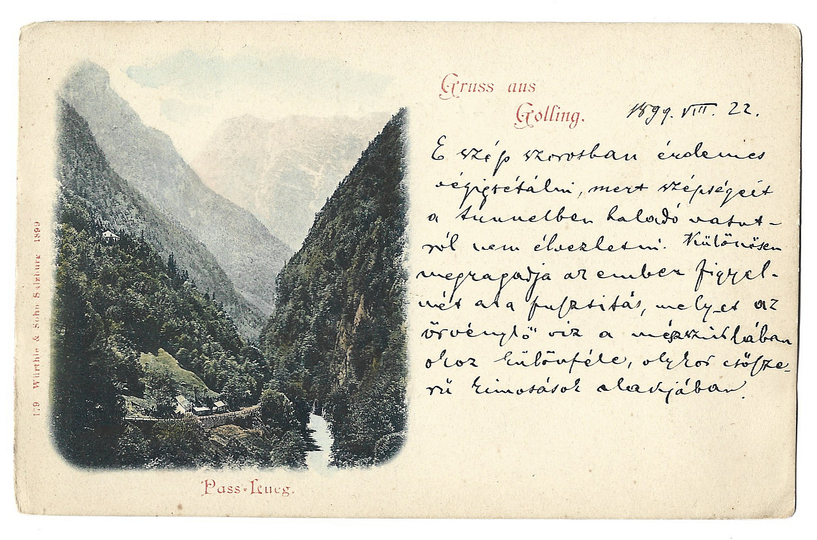 Gruss aus
Golling.
1899. VIII. 22.
E szép szorosban érdemes
végigsétálni, mert szépségeit
a tunnelben haladó vasut-
ról nem élvezhetni. Különösen
megragadja az ember figyel-
mét az a pusztitás, melyet az
örvénylő viz a mészsziklában
okoz különféle, olykor csősze-
rü kimosások alakjában.
Pass-Lueg.
179 Würthle & Sohn Salzburg 1899